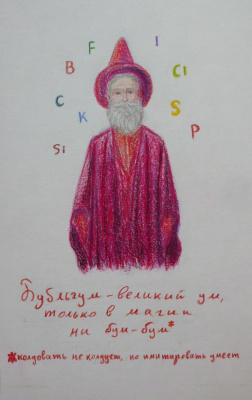 F I
B Cl
C K S
Si P
Бубльгум - великий ум,
только в магии
ни бум-бум*
*колдовать не колдует, но имитировать умеет